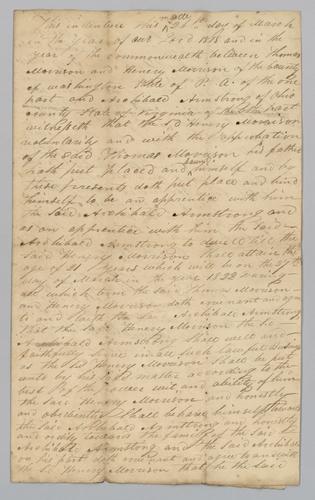 This indenture this 26th day of March
in the year of our Lord 1818 and in the
year of the commonwealth between Thomas
Morrison and Henery Morrison of the County
of washington State of P. A. of the one
part and Archibald Armstrong of Ohio
County State of Virginia of the other part
witnesseth that the sd Henery Morrison
voluntarily and with the approbation
of the sd Thomas Morrison his father
hath put placed and and by
these presents doth put place and bind
himself to be an apprentice with him
the said Archibald Armstrong and
as an apprentice with him the said
Archibald Armstrong to dwell the
said Henery Morrison shall attain the
age of 21 years which will be on the
day of March in the year 1822 during
all which term the said Thomas Morrison
and Henery Morrison doth covenant and agree
to and with the said Archibald Armstrong
that the said Henery Morrison the sd
Archibald Armstrong shall well and
faithfully serve in all such lawful business
as the sd Henery Morrison shall be put
unto by his sd master according to the
best of his power wit and ability of him
the said Henery Morrison and honestly
and obediently shall behave himself towards
the said Archibald Armstrong and honestly
and orderly towards the family of the said
Archibald Armstrong and the said Archibald
on his part doth covenant and agree to and with
the sd Henery Morrison that he the said